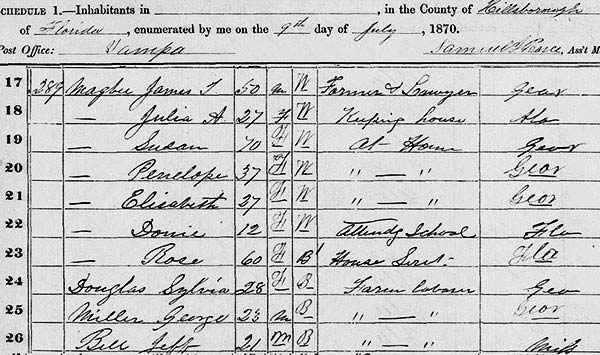 SCHEDULE 1.—Inhabitants in , in the County of Hillsborough
of Florida, enumerated by me on the 9th day of July, 1870.
Post Office: Tampa Samuel Ass't M
17 289 Magbee James T 50 m W Farmer & Lawyer Geor
18 — Julia A. 27 F W Keeping house Ala
19 — Susan 70 F W At Home Geor
20 — Penelope 37 F W " — " Geor
21 — Elisabeth 27 F W " — " Geor
22 — Donie 12 F W Attends School Fla
23 — Rose 60 F B House Servt- Fla
24 Douglas Sylvia 28 F B Farm laborer Geo
25 Miller George 23 m B " — " Geor
26 Bell Jeff 21 m B " — " Miss